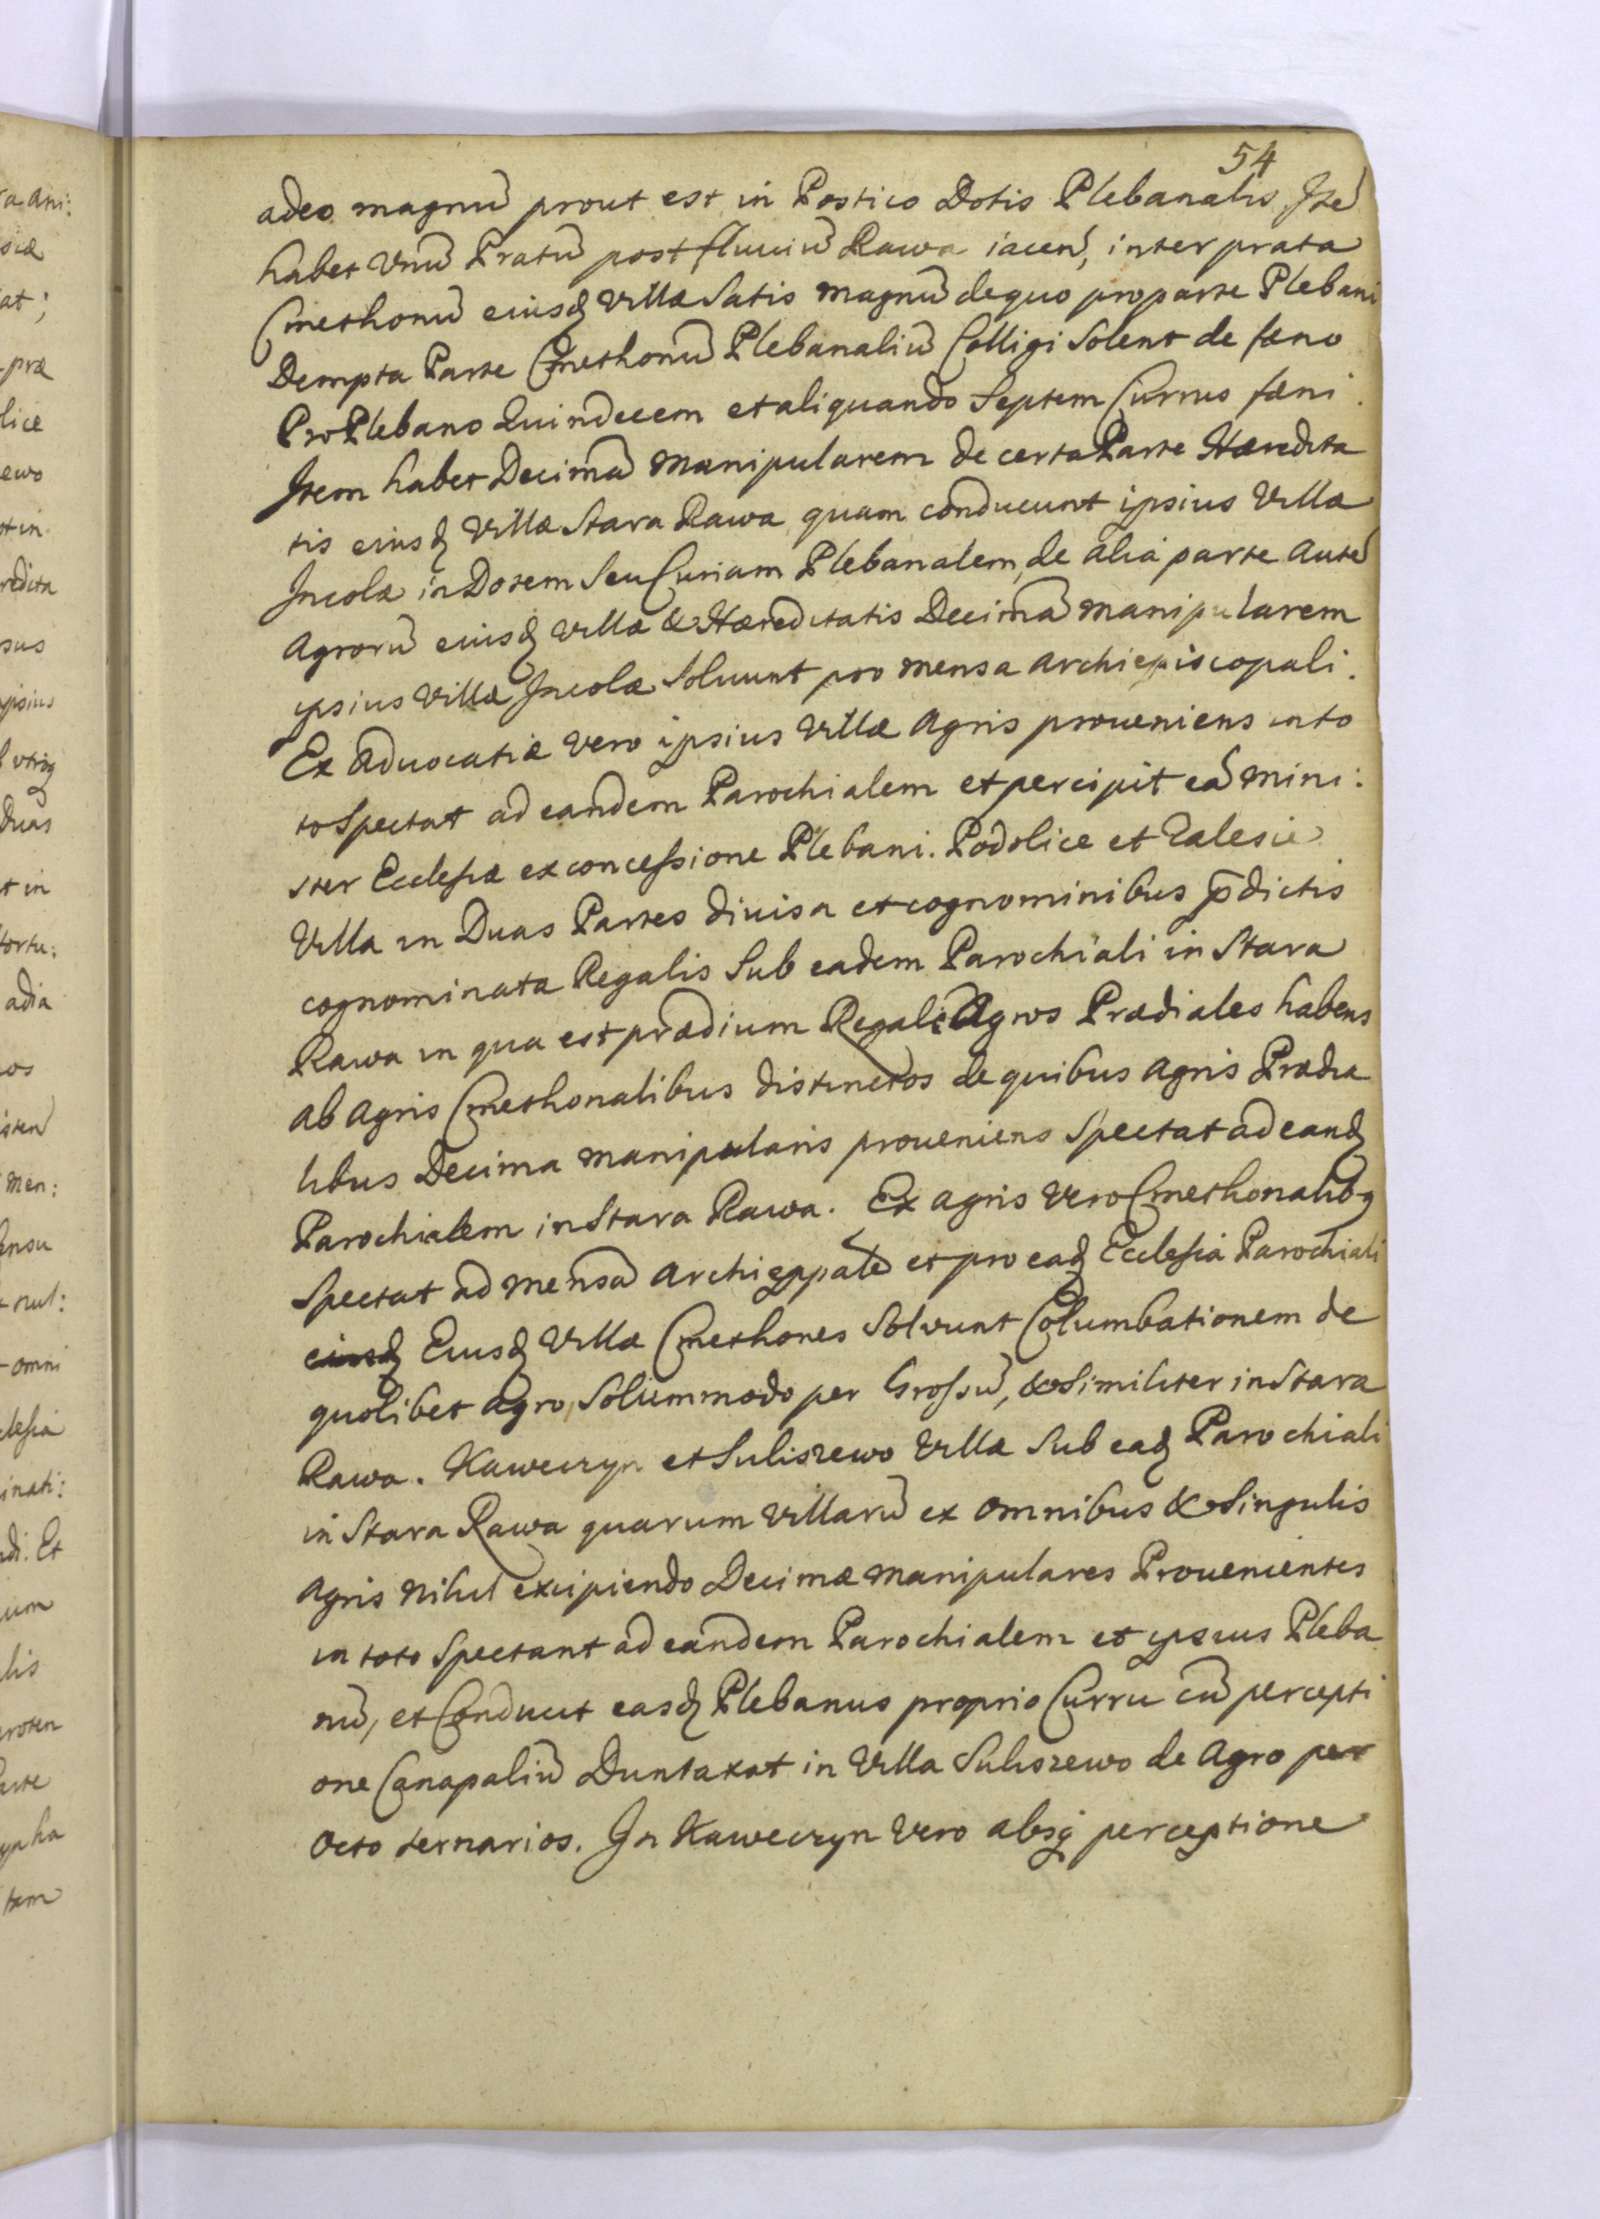 54
adeo magnũ prout est in Postico Dotis Plebanalis Itẽ
habet Vnũ Pratũ post fluuiũ Rawa iaceñ, inter prata
Cmethonũ eiusdẽ Villæ Satis magnũ de quo pro parte Plebani
Dempta Parte Cmethonũ Plebanaliũ Colligi Solent de fæno
Pro Plebano Quindecem et aliquando Septem Currus fæni.
Item habet Decimã Manipularem de certa Parte Hæredita
tis eiusdẽ Villæ Stara Rawa quam conducunt ipsius Villæ
Incolæ in Dotem Seu Curiam Plebanalem, de alia parte Autẽ
Agrorũ eiusdẽ Villæ & Hæreditatis Decimã Manipularem
ipsius Villæ Incolæ Soluunt pro Mensa Archiepiscopali.
Ex Aduocatiæ Vero ipsius Villæ Agris proueniens in to
to Spectat ad eandem Parochialem et percipit eã Mini:
ster Ecclesiæ ex concessione Plebani. Podolice et Zalesie
Villa in Duas Partes diuisa et cognominibus p̃dictis
cognominata Regalis Sub eadem Parochiali in Stara
Rawa in qua est prædium Regale Agros Prædiales habens
ab Agris Cmethonalibus distinctos de quibus Agris Prædia
libus Decima Manipularis proueniens Spectat ad eandẽ
Parochialem in Stara Rawa. Ex Agris Vero Cmethonalibq
Spectat ad Mensã Archieppalẽ et pro eadẽ Ecclesia Parochiali
eiusdẽ Eiusdẽ Villæ Cmethones Solvunt Columbationem de
quolibet Agro, Solummodo per Grossũ, & Similiter in Stara
Rawa. Kaweczyn et Suliszewo Villæ Sub eadẽ Parochiali
in Stara Rawa quarum Villarũ ex omnibus & Singulis
Agris Nihil excipiendo Decimæ Manipulares Prouenientes
in toto Spectant ad eandem Parochialem et ipsius Pleba
nũ, et Conducit easdẽ Plebanus proprio Curru cũ percepti
one Canapaliũ Duntaxat in Villa Suliszewo de Agro per
octo ternarios. In Kaweczyn Vero absq perceptione